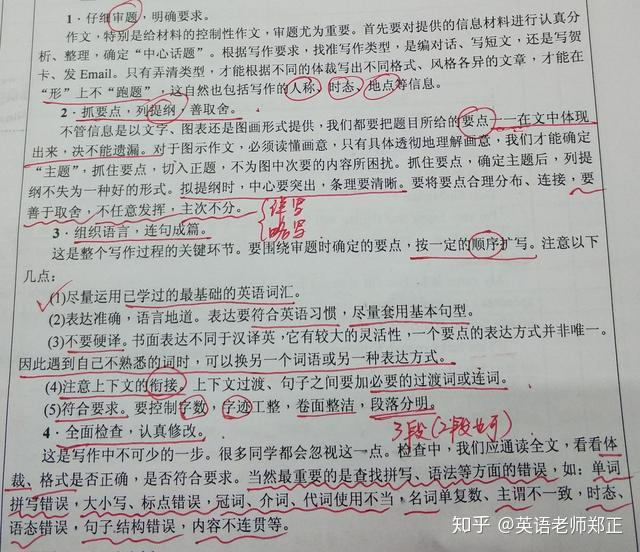 1·仔细审题，明确要求。
作文，特别是给材料的控制性作文，审题尤为重要。首先要对提供的信息材料进行认真分
析、整理，确定“中心话题”。根据写作要求，找准写作类型，是编对话、写短文，还是写贺
卡、发 Email。只有弄清类型，才能根据不同的体裁写出不同格式、风格各异的文章，才能在
“形”上不“跑题”，这自然也包括写作的人称、时态、地点等信息。
2·抓要点，列提纲，善取舍。
不管信息是以文字、图表还是图画形式提供，我们都要把题目所给的要点一一在文中体现
出来，决不能遗漏。对于图示作文，必须读懂画意，只有具体透彻地理解画意，我们才能确定
“主题”，抓住要点，切入正题，不为图中次要的内容所困扰。抓住要点，确定主题后，列提
纲不失为一种好的形式。拟提纲时，中心要突出，条理要清晰。要将要点合理分布、连接，要
善于取舍，不任意发挥，主次不分。
详写
略写
3·组织语言，连句成篇。
这是整个写作过程的关键环节。要围绕审题时确定的要点，按一定的顺序扩写。注意以下
几点：
(1)尽量运用已学过的最基础的英语词汇。
(2)表达准确，语言地道。表达要符合英语习惯，尽量套用基本句型。
(3)不要硬译。书面表达不同于汉译英，它有较大的灵活性，一个要点的表达方式并非唯一。
因此遇到自己不熟悉的词时，可以换另一个词语或另一种表达方式。
(4)注意上下文的衔接。上下文过渡、句子之间要加必要的过渡词或连词。
(5)符合要求。要控制字数，字迹工整，卷面整洁，段落分明。
3段(2段也可)
4·全面检查，认真修改。
这是写作中不可少的一步。很多同学都会忽视这一点。检查中，我们应通读全文，看看体
裁、格式是否正确，是否符合要求。当然最重要的是查找拼写、语法等方面的错误，如：单词
拼写错误，大小写、标点错误，冠词、介词、代词使用不当，名词单复数、主谓不一致，时态、
语态错误，句子结构错误，内容不连贯等。
知乎 @英语老师郑正